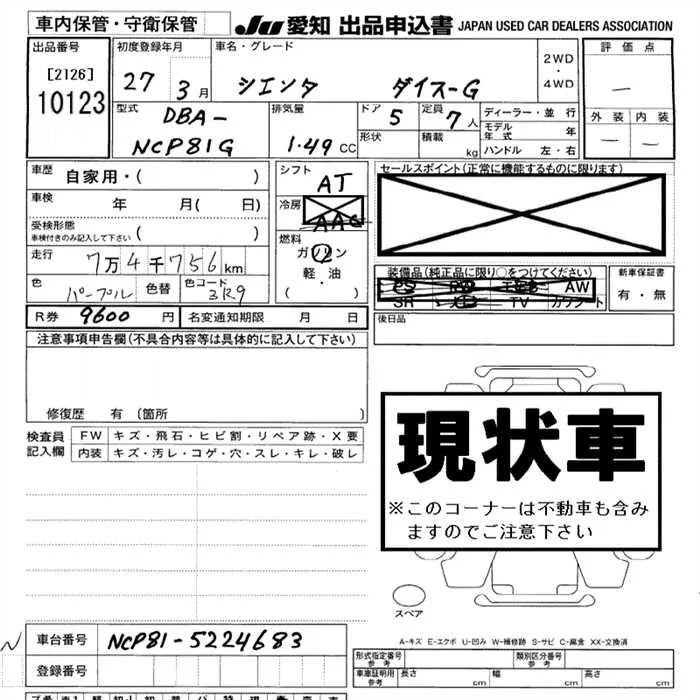 車内保管・守衛保管
JU 愛知 出品申込書 JAPAN USED CAR DEALERS ASSOCIATION
出品番号 [2126] 10123
初度登録年月 27年 3月
車名・グレード シエンタ ダイス-G
2WD・4WD
評価点 —
外装 — 内装 —
型式 DBA-NCP81G
排気量 1.49 CC
ドア 5 定員 7人
形状 積載 kg
ディーラー・並行
モデル年式 年
ハンドル 左・右
車歴 自家用・( )
車検 年 月( 日)
受検形態 車検付きのみ記入して下さい ( )
走行 7万4千756km
色 パープル 色替 色コード 3R9
シフト AT
冷房 AAC
燃料 ガソリン・軽油 ( )
セールスポイント(正常に機能するものに限ります)
装備品(純正品に限り○をつけてください)
SR TV AW
新車保証書 有・無
後日品
R券 9600 円 名変通知期限 月 日
注意事項申告欄(不具合内容等は具体的に記入して下さい)
修復歴 有 〔箇所 〕
検査員記入欄
FW キズ・飛石・ヒビ割・リペア跡・X要
内装 キズ・汚レ・コゲ・穴・スレ・キレ・破レ
現状車
※このコーナーは不動車も含み
ますのでご注意下さい
スペア
A-キズ E-エクボ U-凹み W-補修跡 S-サビ C-腐食 XX-交換済
車台番号 NCP81-5224683
登録番号
形式指定番号 参考 類別区分番号 参考
車庫証明用 参考 長さ cm 幅 cm 高さ cm